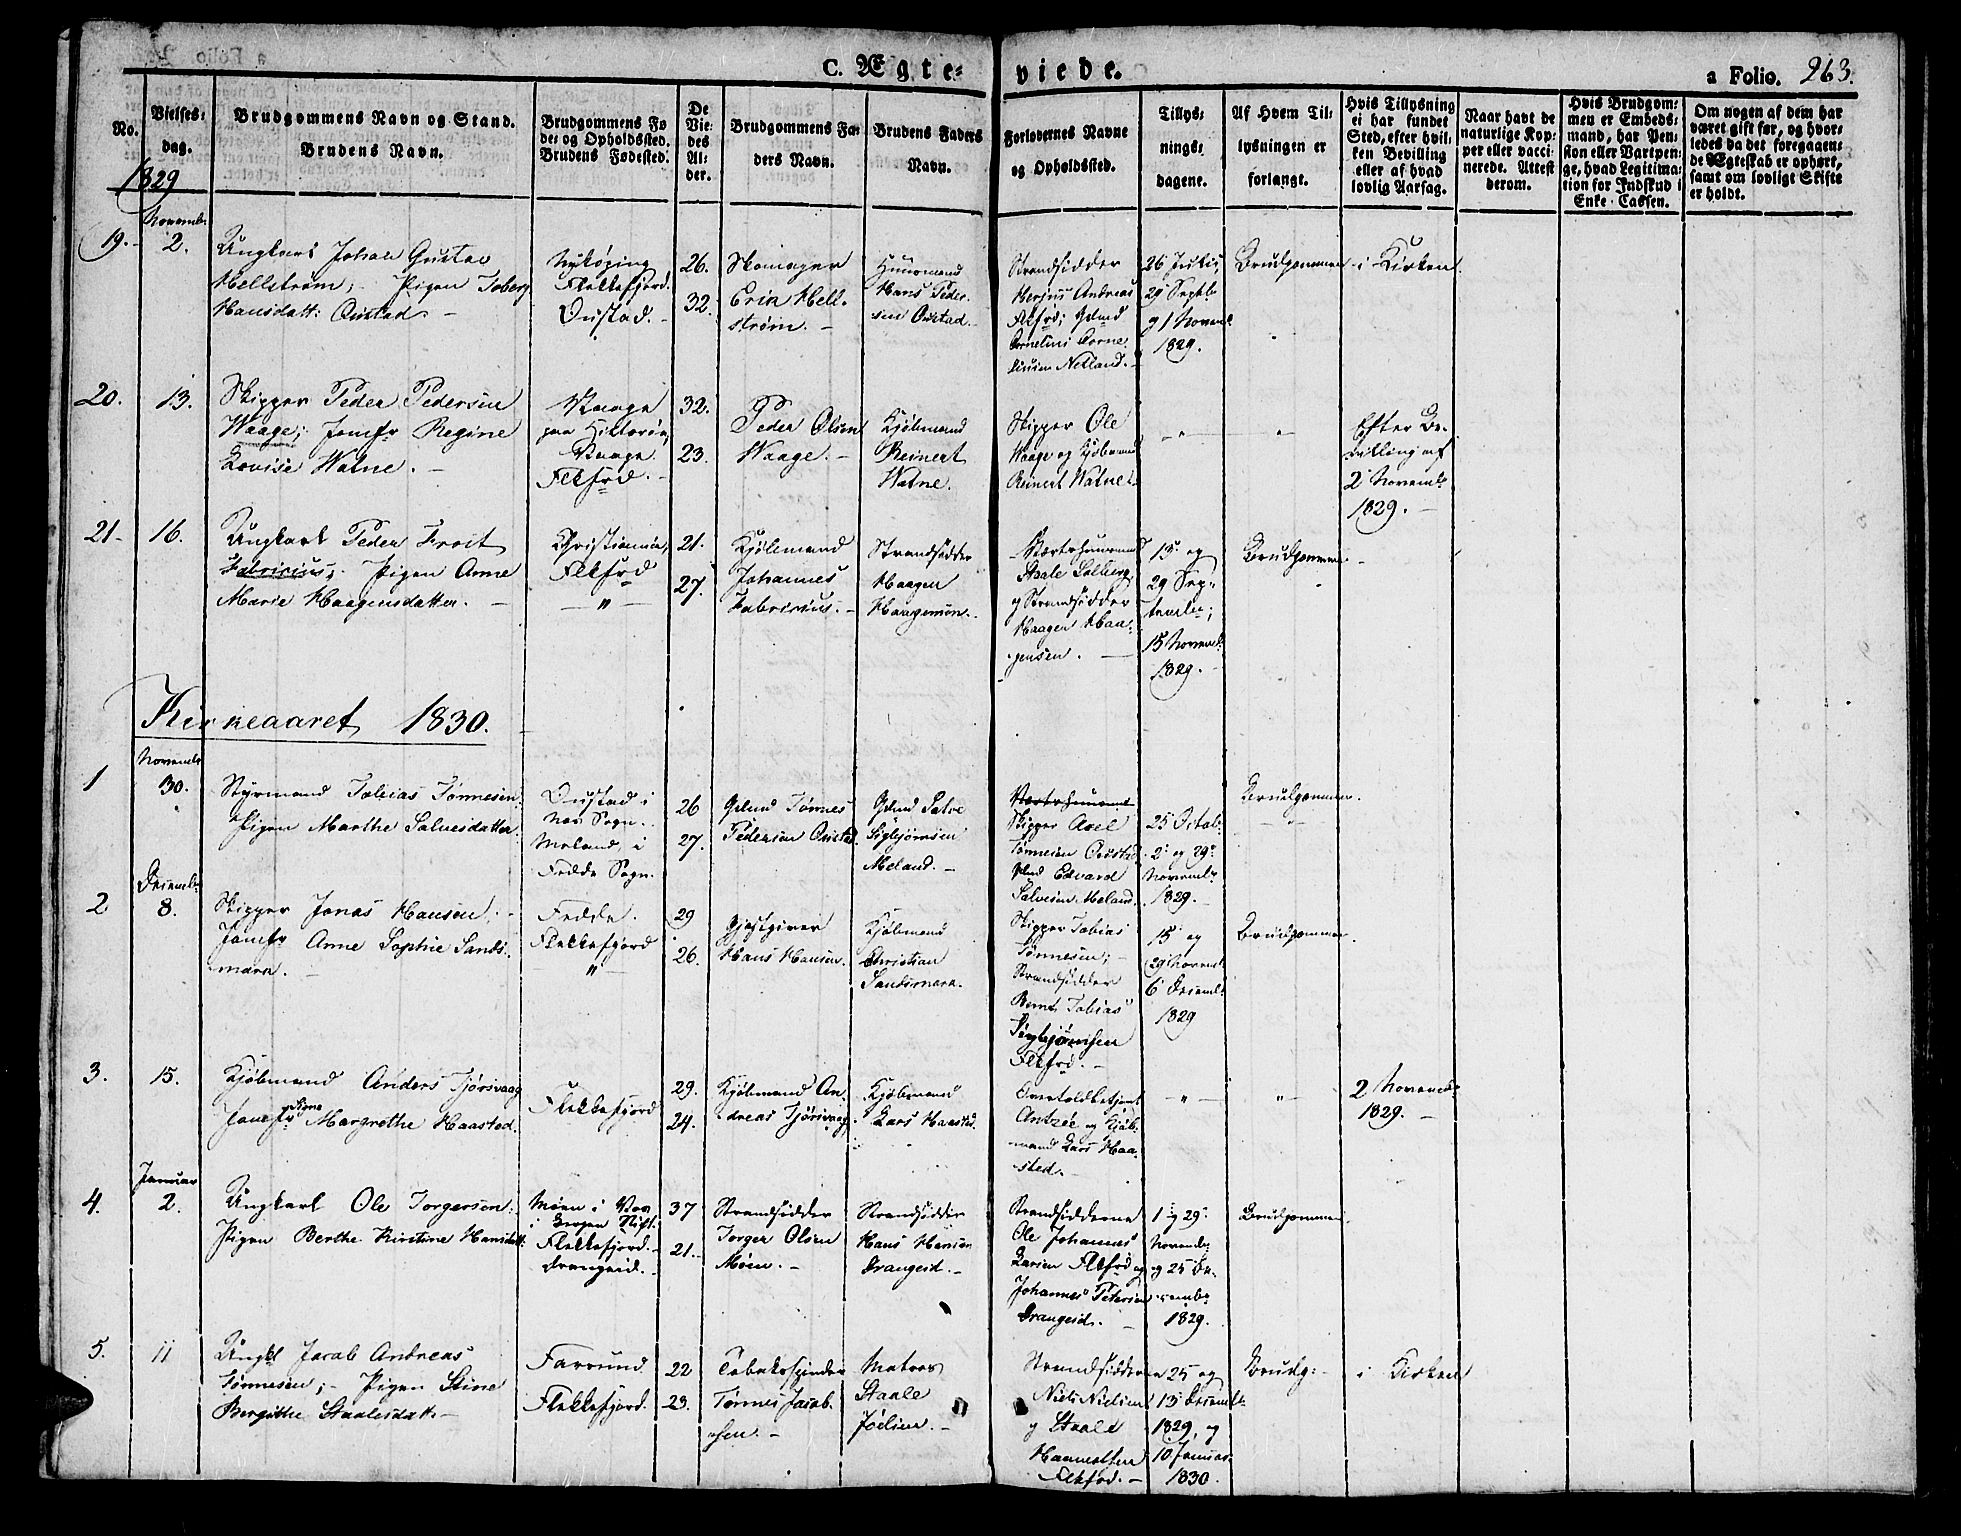 C. Ægte-
viede.
a Folio. 263.
No.
Vielses-
dag.
Brudgommens Navn og Stand.
Brudens Navn.
Brudgommens Fø
de- og Opholdssted.
Brudens Fødested.
De
Vie-
des
Al-
der.
Brudgommens Fa-
ders Navn.
Brudens Faders
Navn.
Forlovernes Navne
og Opholdssted.
Tillys-
nings-
dagene.
Af Hvem Til-
lysningen er
forlangt.
Hvis Tillysning
ei har fundet
Sted, efter hvil-
ken Bevilling
eller af hvad
lovlig Aarsag.
Naar havt de
naturlige Kop-
per eller vacci-
nerede. Attest
derom.
Hvis Brudgom-
men er Embeds-
mand, har Pen-
sion eller Vartpen-
ge, hvad Legitima-
tion for Indskud i
Enke-Cassen.
Om nogen af dem har
været gift før, og hvor-
ledes da det foregaaen-
de Ægteskab er ophørt,
samt om lovligt Skifte
er holdt.
1829
19.
Novembr
2.
Ungkarl Johan Gustav
Hellstrøm; Pigen Toberg
Hansdatt: Oustad.
Nykøping
Flekkefjord.
Oustad.
26.
32.
Skomager
Erik Hell-
strøm.
Huusmand
Hans Peder-
sen Oustad.
Strandsidder
Andreas
Flkfrd; Gdmd
Cornelius Corne-
liusen Netland.
26 Julii
29 Septbr
og 1 Novembr
1829.
Brudgommen
i Kirken
20.
13.
Skipper Peder Pedersen
Waage; Jomfr Regine
Lovise Watne.
Waage
paa Hitterøe,
Waage
Flkfrd.
32.
23.
Peder Olsen
Waage.
Kjøbmand
Reinert
Watne.
Skipper Ole
Waage og Kjøbmand
Reinert Watne
"
"
Efter Be-
villing af
2 Novembr
1829.
21.
16.
Ungkarl Peder Froit
Fabricius; Pigen Anne
Marie Haagensdatter.
Christiania,
Flkfrd
"
21.
27.
Kjøbmand
Johannes
Fabricius.
Strandsidder
Haagen
Haagensen.
Staale Solberg
og Strandsidder
Haagen Haa-
gensen.
13 og
29 Sep-
tember;
15 Novembr
1829.
Brudgommen
Kirkeaaret 1830.
1
Novembr
30.
Styrmand Tobias Tønnesen.
Pigen Marthe Salvesdatter.
Oustad i
Næs Sogn.
Meland, i
Fedde Sogn.
26
27.
Gdmd Tønnes
Pedersen Oustad.
Gdmd Salve
Sigbjørnsen
Meland.
Skipper Axel
Tønnesen Oustad
Gdmd Edvard
Salvesen Meland.
25 Octobr
2 og 29
Novembr
1829.
Brudgommen.
2
Decembr
8.
Skipper Jonas Hansen.
Jomfr Anne Sophie Sands-
mark.
Fedde.
Flekkefjord
"
29
26.
Gjæstgiver
Hans Hansen.
Kjøbmand
Christian
Sandsmark.
Skipper Tobias
Tønnesen;
Strandsidder
Bernt Tobias
Sigbjørnsen
Flkfrd.
15 og
29 Novembr
6 Decembr
1829
Brudgommen.
3.
15.
Kjøbmand Anders Tjørsvaag
Jomfr Signe Margrethe Haasted.
Flekkefjord
29.
24.
Kjøbmand An-
dreas Tjørsvaag
Kjøbmand
Lars Haasted.
Overtoldbetjent
Antzée og Kjøb-
mand Lars Haa-
sted.
"
"
2 Novembr
1829.
4.
Januar
2.
Ungkarl Ole Torgersen.
Pigen Berthe Kirstine Hansdatt:
Møen i Vos
i Bergens Stift.
Flekkefjord.
Drangeid.
37
21.
Strandsidder
Torger Olsen
Møen.
Strandsidder
Hans Hansen
Drangeid.
Strandsidderne
Ole Johannes
Larsen Flkfrd og
Johannes Petersen
Drangeid.
1 og 29
Novembr
og 25 De-
cembr
1829.
Brudgommen.
5.
11
Ungkl Jacob Andreas
Tønnesen; Pigen Stine
Bergithe Staalesdatt.
Farsund
Flekkefjord.
22
23.
Tobakspinder
Tønnes Jacob-
sen.
Matros
Staale
Joelsen.
Strandsidderne
Niels Nielsen
og Staale
Flkfrd.
25 og
13 Decembr
1829, og
10 Januar
1830.
Brudg:
i Kirken